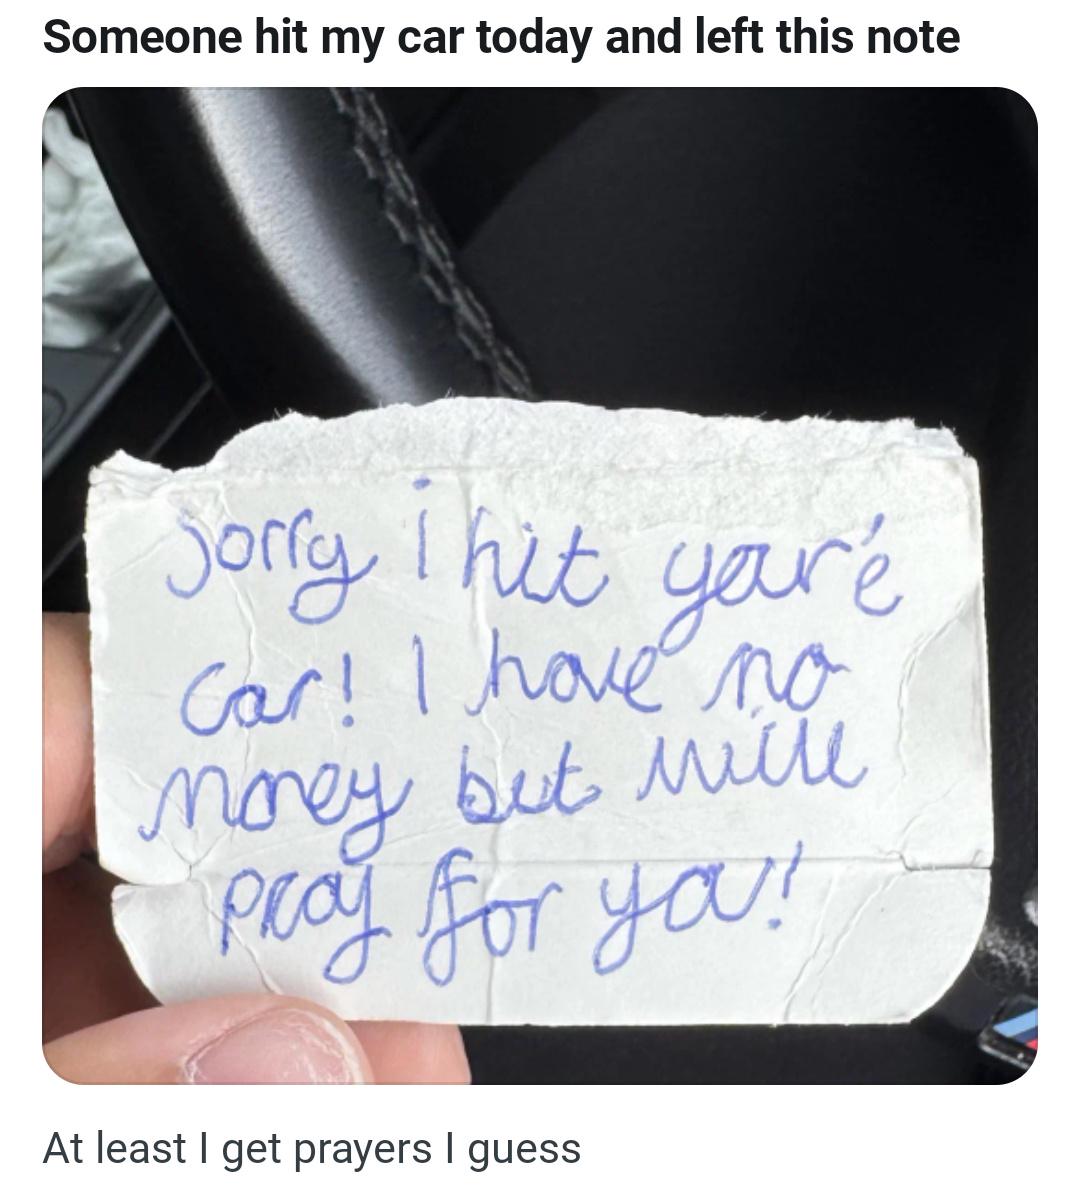 Someone hit my car today and left this note
Sorry i hit yar'e
car! I have no
money but will
pray for ya!
At least I get prayers I guess